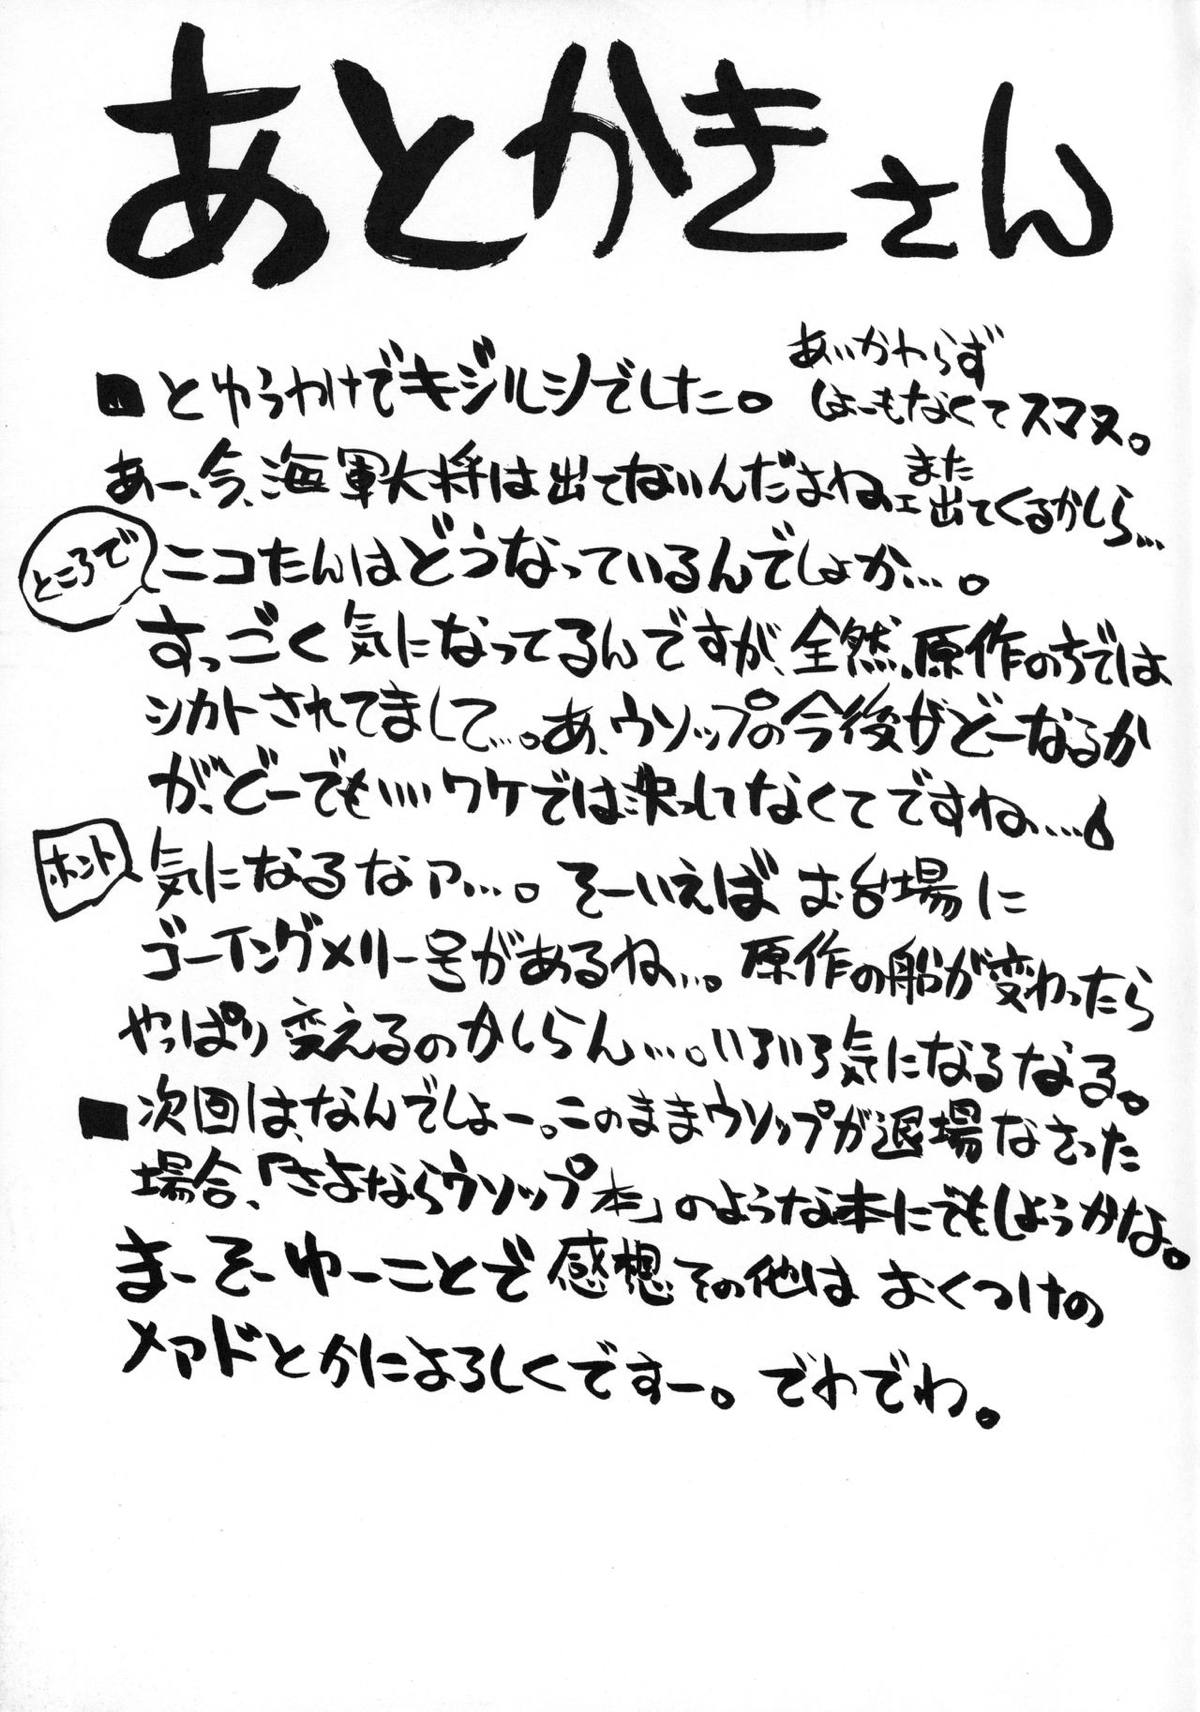 あとかきさん
■とゆうわけでキジルシでした。あいかわらず
しょーもなくてスマヌ。
あー、今、海軍大将は出てないんだよねェ、また出てくるかしら…
ところで
ニコたんはどうなっているんでしょか…。
すっごく気になってるんですが、全然、原作の方では
シカトされてまして…。あ、ウソップの今後がどーなるか
が、どーでもいいワケでは決してなくてですね…
ホント
気になるなァ…。そーいえばお台場に
ゴーイングメリー号があるね…。原作の船が変わったら
やっぱり変えるのかしらん…。いろいろ気になるなる。
■次回は、なんでしょー。このままウソップが退場なさった
場合、「さよならウソップ本」のような本にでもしようかな。
まーそーゆーことで感想その他はおくつけの
メアドとかによろしくですー。でわでわ。